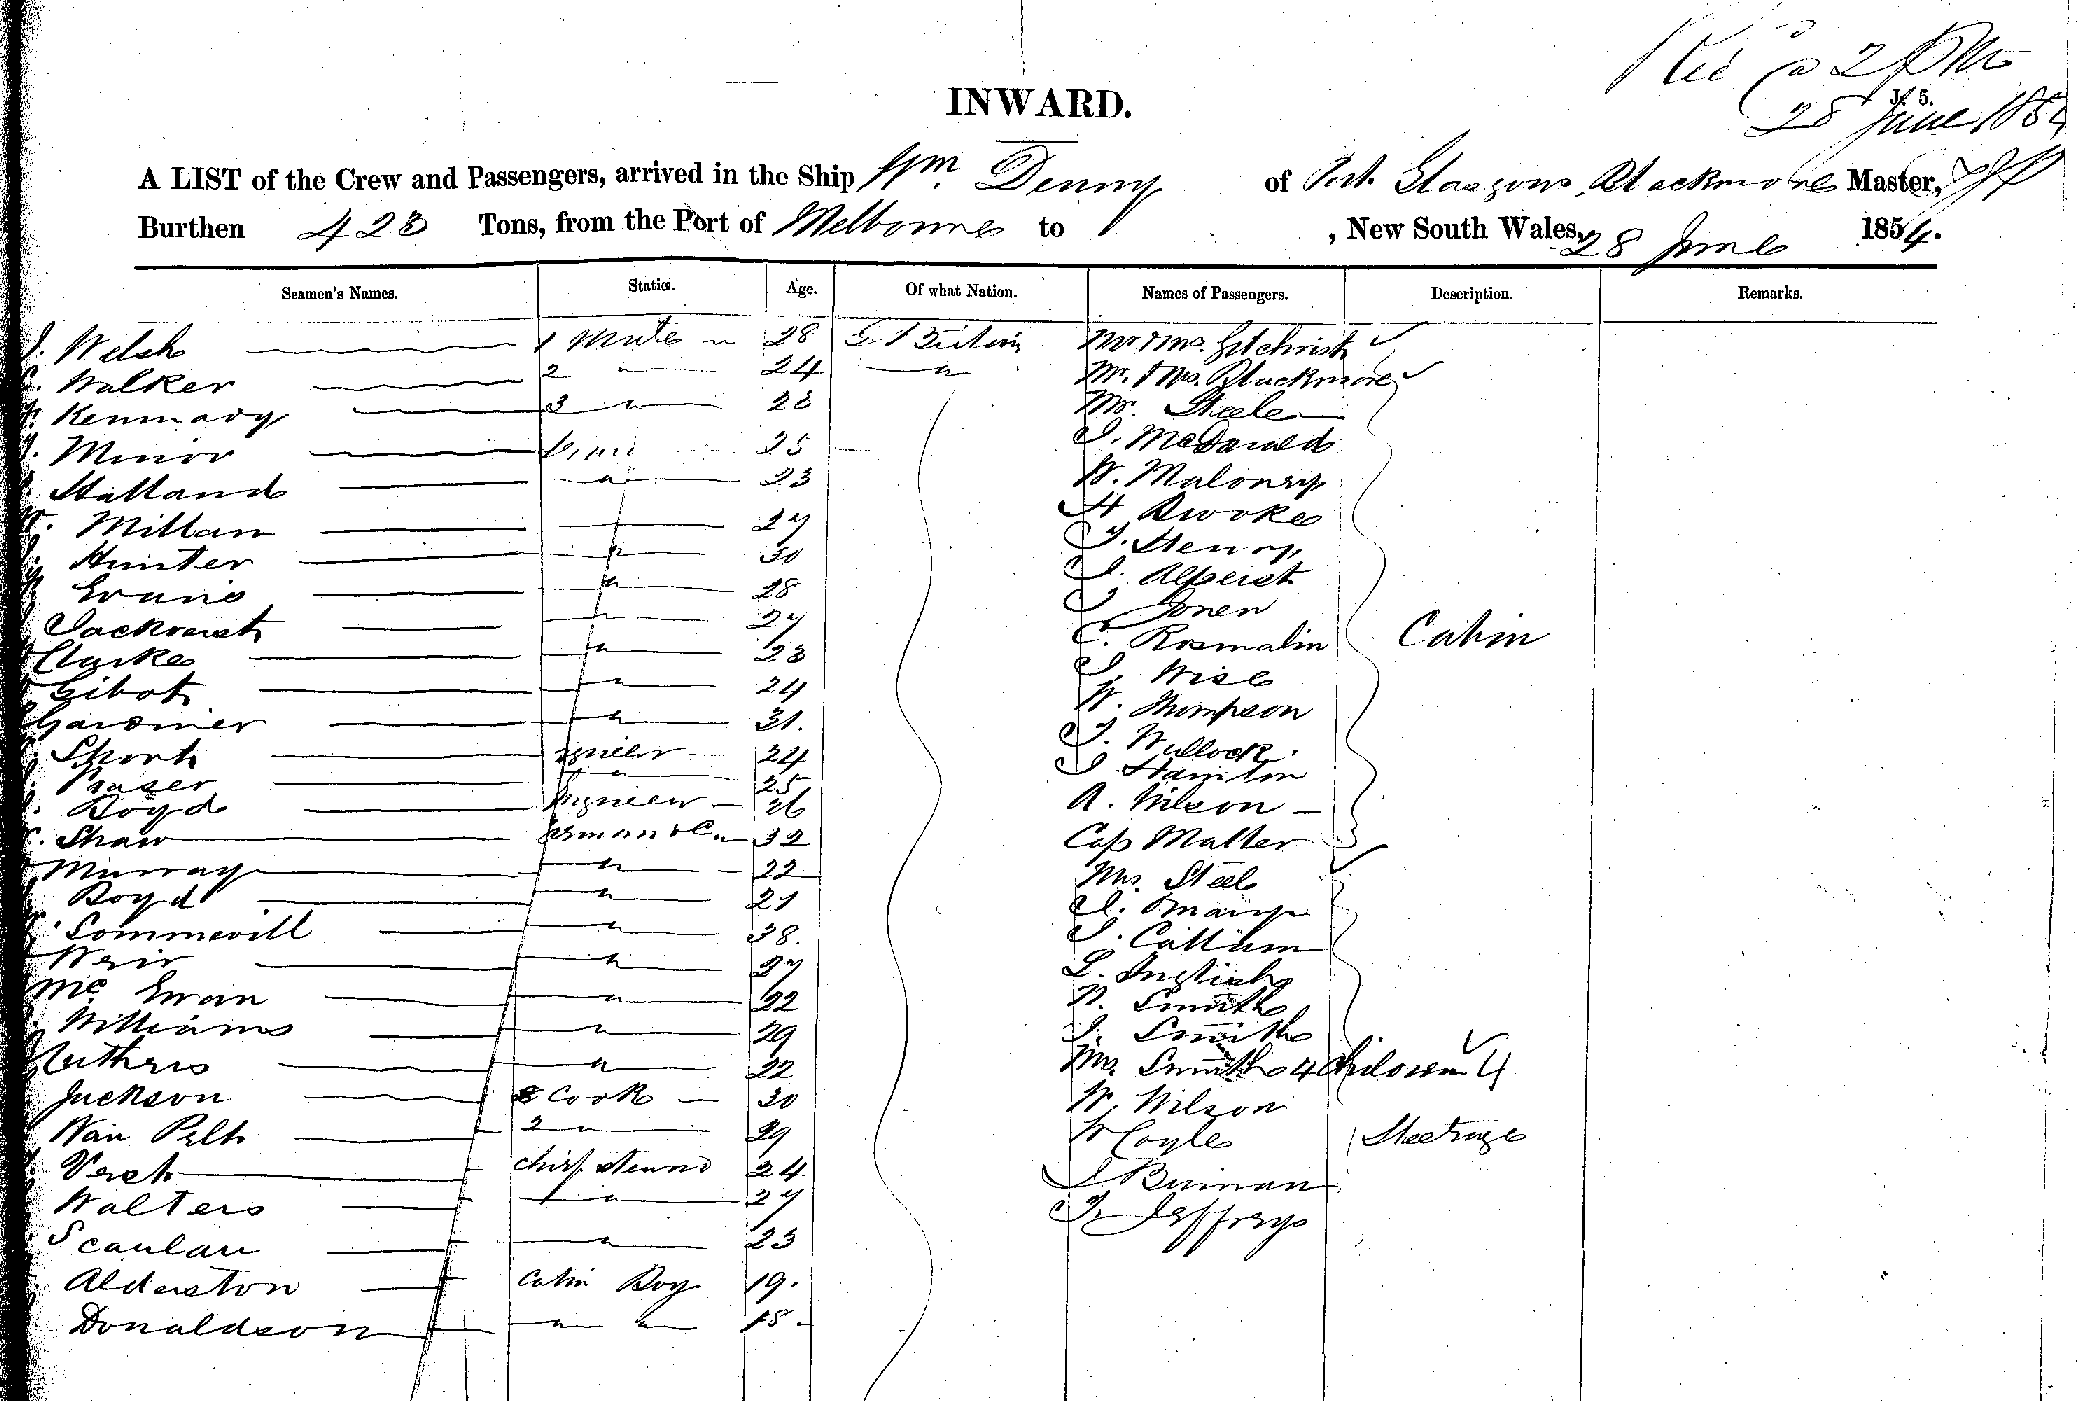 2 PM
J. 5.
28 June 1854
INWARD.
A LIST of the Crew and Passengers, arrived in the Ship Wm. Denny of Port Glasgow, Blackmore Master,
Burthen 423 Tons, from the Port of Melbourne to , New South Wales, 28 June 1854.
Seamen's Names. Statics. Age. Of what Nation. Names of Passengers. Description. Remarks.
J. Welsh 1 Mate 28 G. Britain Mr & Mrs. Gilchrist
Walker 2 " 24 " Mr. & Mrs. Blackmore
3 " 28 Mr. Steele
Minor 25 J. McDonald
Hatland " 23 W. Maloney
Millan 27 H Brooke
Hunter " 30 J. Henry
Evans " 28 J.
" 27 J Jonen
Clarke " 23 C. Rosmalin Cabin
" 24 J. Wise
Gardiner " 31. W. Thompson
Short 24 J. Wullock
Fraser " 25 J
Boyd 26 A. Wilson
Shaw 32 Cap Malter
Murray " 22 Mrs. Steel
Boyd " 21 J.
Sommervill " 38. J. Callum
Weir " 27 L. Inglish
Mc Ewan " 22 Smith
Williams " 29 J. Smith
" 22 Mrs. Smith 4 children 4
Jackson Cook 30 W. Wilson
Van Pelt 2 " 29 W Coyle Steerage
24 J
Walters " 27 J. Jeffreys
Scanlan " 23
Alderston Cabin Boy 19.
Donaldson " " 18.